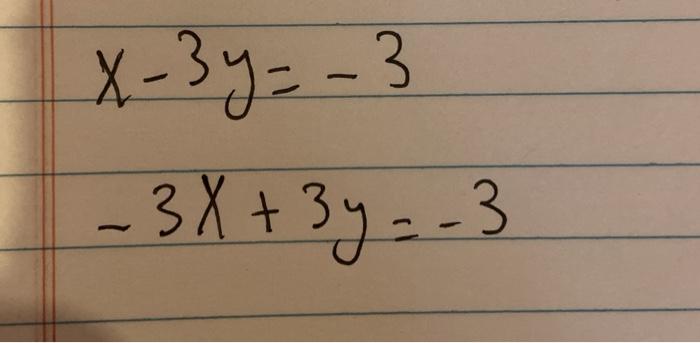 x - 3y = - 3
- 3x + 3y = - 3